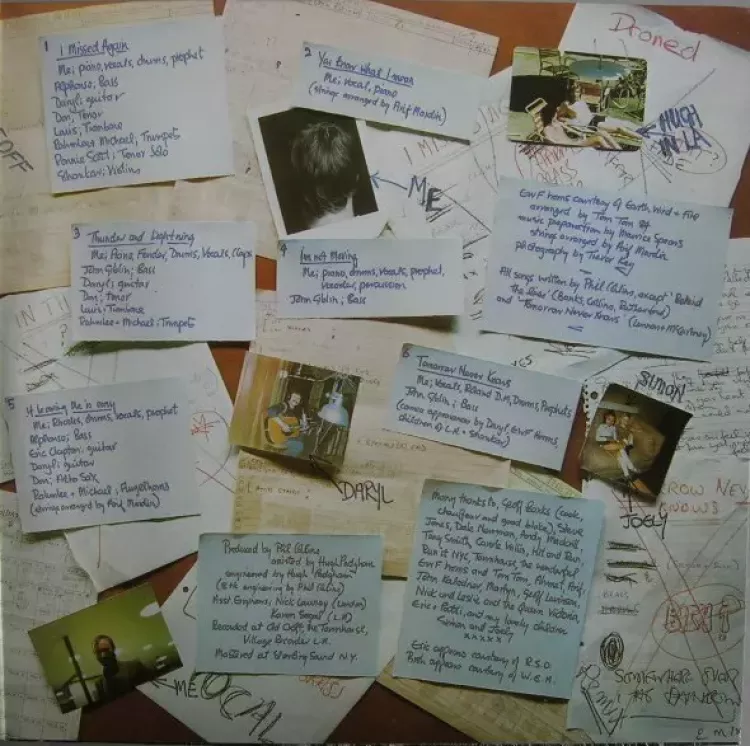 1 I Missed Again
Me; piano, vocals, drums, prophet
Alphonso; Bass
Daryl; guitar
Don; Tenor
Louis; Trombone
Rahmlee + Michael; Trumpets
Ronnie Scott; Tenor Solo
Shankar; Violins
2 You Know What I mean
Me; vocal, piano
(strings arranged by Arif Mardin)
Droned
MUCH
IN LA
ME
3 Thunder and Lightning
Me; Piano, Fender, Drums, Vocals, Claps
John Giblin; Bass
Daryl; guitar
Don; tenor
Louis; Trombone
Rahmlee + Michael; Trumpets
4 I'm not Moving
Me; piano, drums, vocals, prophet,
vocoder, percussion
John Giblin; Bass
EWF horns courtesy of Earth Wind + Fire
arranged by Tom Tom 84
music preparation by Maurice Spears
strings arranged by Arif Mardin
photography by Trevor Key
All songs written by Phil Collins, except 'Behind
the lines' (Banks, Collins, Rutherford)
and 'Tomorrow Never Knows' (Lennon + McCartney)
IN TH
5 If Leaving Me is easy
Me; Rhodes, drums, vocals, prophet
Alphonso; Bass
Eric Clapton; guitar
Daryl; guitar
Don; Alto Sax
Rahmlee + Michael; Flugelhorns
(strings arranged by Arif Mardin)
6 Tomorrow Never Knows
Me; Vocals, Roland D.M, Drums, Prophets
John Giblin; Bass
(cameo appearances by Daryl, EWF Horns,
children of L.A. + Shankar)
SIMON
JOELY
DARYL
Produced by Phil Collins
assisted by Hugh Padgham
engineered by Hugh Padgham
(8 tk engineering by Phil Collins)
Asst Engineers, Nick Launay (London)
Karen Siegel (L.A)
Recorded at Old Croft, the Townhouse,
Village Recorder L.A.
Mastered at Sterling Sound N.Y.
Many thanks to, Geoff Banks (cook,
chauffeur and good bloke), Steve
Jones, Dale Newman, Andy Mackrill,
Tony Smith, Carole Willis, Hit and Run,
Run it NYC, Townhouse, the wonderful
EWF horns and Tom Tom, Ahmet, Arif,
John Kalodner, Martyn, Geoff
Nick and Leslie and the Queen Victoria,
Eric + Patti, and my lovely children
Simon and Joely
xxxxxx
Eric appears courtesy of R.S.O.
Both appears courtesy of W.E.A.
ROW NEV
KNOWS
ME
OCAL
SOMEWHERE OVER
THE RAINBOW